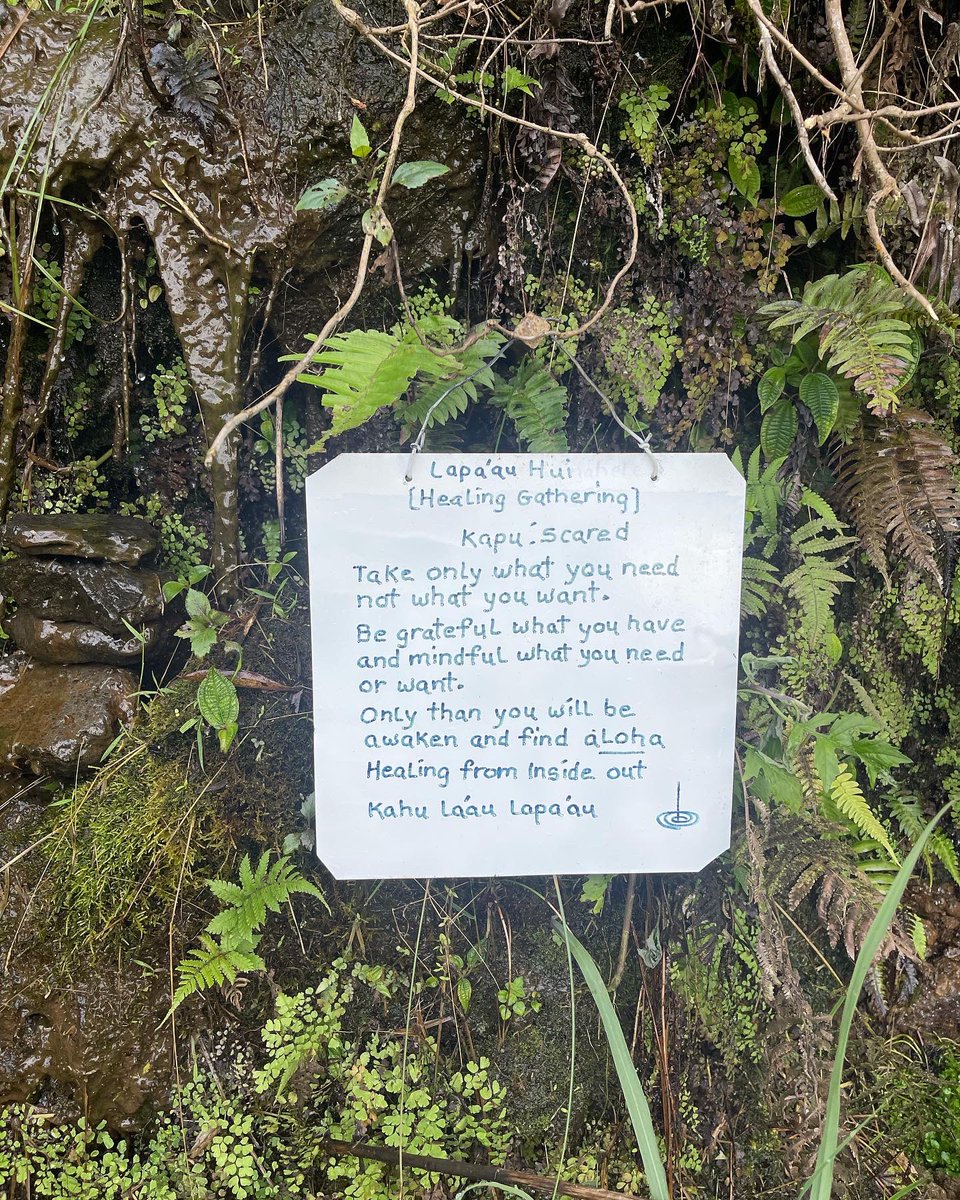 Lapa'au Hui
[Healing Gathering]
Kapu: Scared
Take only what you need
not what you want.
Be grateful what you have
and mindful what you need
or want.
Only than you will be
awaken and find aloha
Healing from Inside out
Kahu La'au Lapa'au